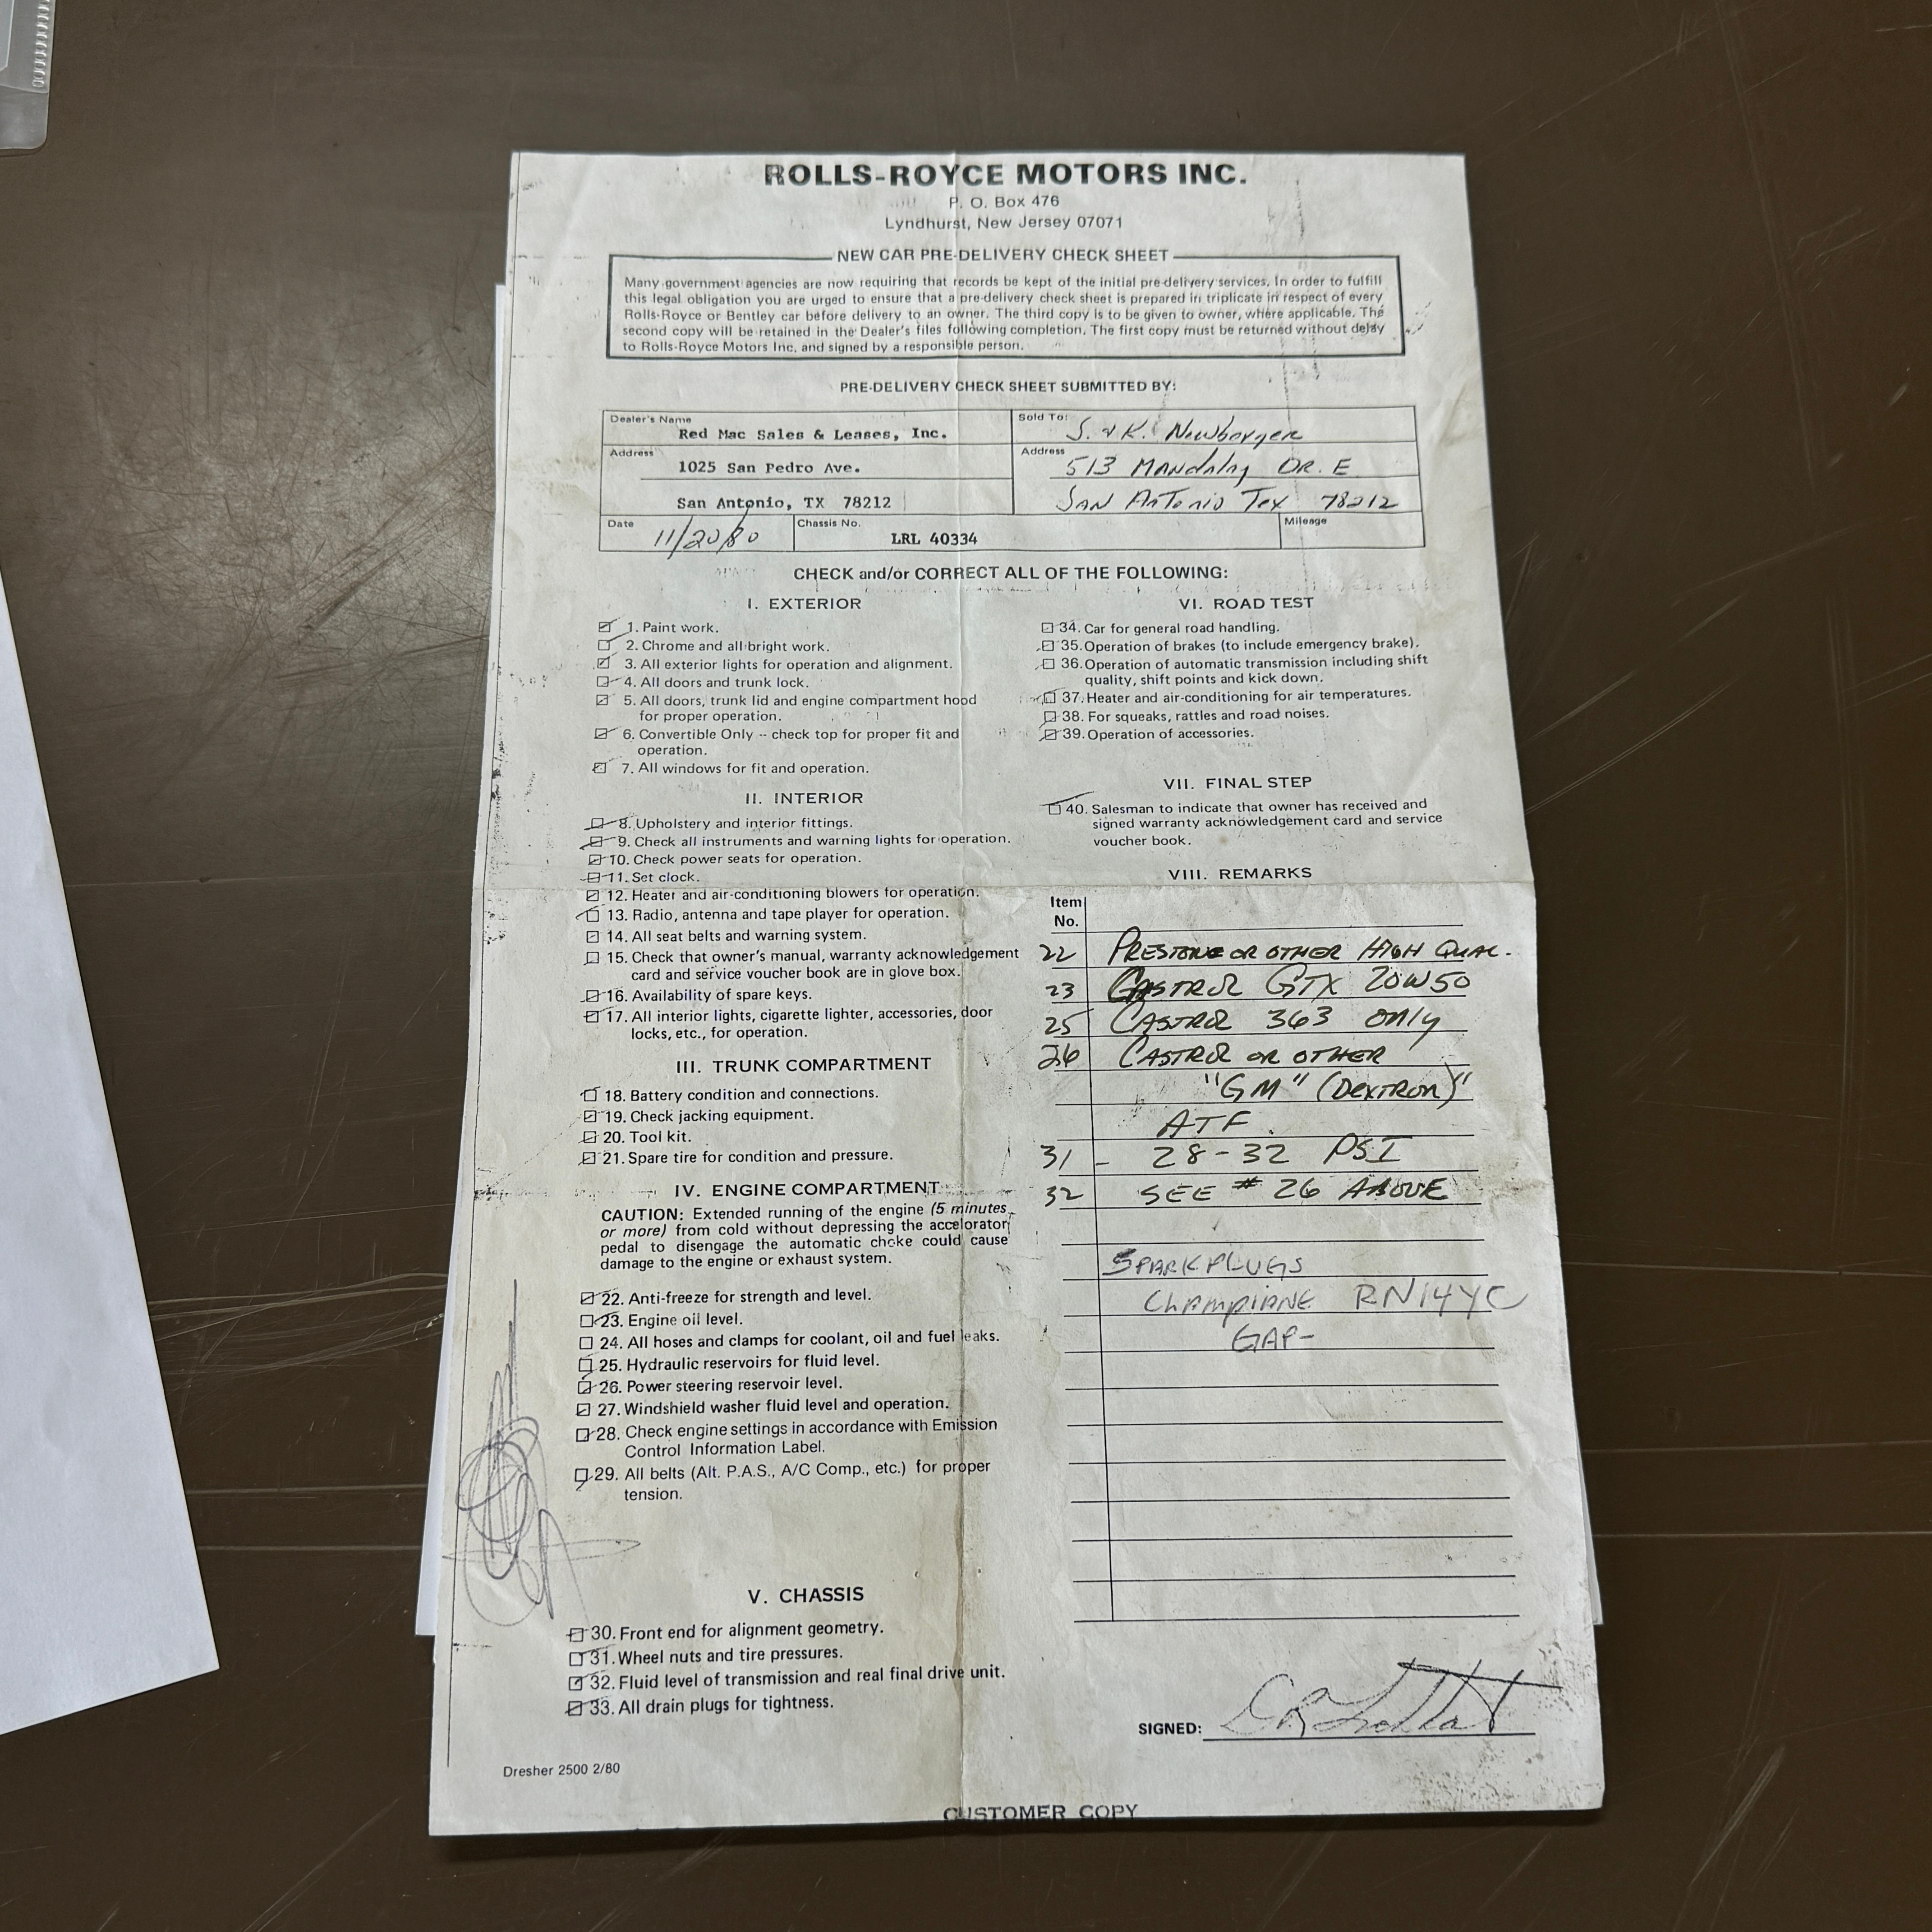 ROLLS-ROYCE MOTORS INC.
P. O. Box 476
Lyndhurst, New Jersey 07071
NEW CAR PRE-DELIVERY CHECK SHEET
Many government agencies are now requiring that records be kept of the initial pre-delivery services. In order to fulfill
this legal obligation you are urged to ensure that a pre-delivery check sheet is prepared in triplicate in respect of every
Rolls-Royce or Bentley car before delivery to an owner. The third copy is to be given to owner, where applicable. The
second copy will be retained in the Dealer's files following completion. The first copy must be returned without delay
to Rolls-Royce Motors Inc. and signed by a responsible person.
PRE-DELIVERY CHECK SHEET SUBMITTED BY:
Dealer's Name
Red Mac Sales & Leases, Inc.
Address
1025 San Pedro Ave.
San Antonio, TX 78212
Sold To:
S. & K. Newberger
Address
513 Mandalay DR. E
San Antonio Tex 78212
Date
11/20/80
Chassis No.
LRL 40334
Mileage
CHECK and/or CORRECT ALL OF THE FOLLOWING:
I. EXTERIOR
1. Paint work.
2. Chrome and all bright work.
3. All exterior lights for operation and alignment.
4. All doors and trunk lock.
5. All doors, trunk lid and engine compartment hood
for proper operation.
6. Convertible Only -- check top for proper fit and
operation.
7. All windows for fit and operation.
II. INTERIOR
8. Upholstery and interior fittings.
9. Check all instruments and warning lights for operation.
10. Check power seats for operation.
11. Set clock.
12. Heater and air-conditioning blowers for operation.
13. Radio, antenna and tape player for operation.
14. All seat belts and warning system.
15. Check that owner's manual, warranty acknowledgement
card and service voucher book are in glove box.
16. Availability of spare keys.
17. All interior lights, cigarette lighter, accessories, door
locks, etc., for operation.
III. TRUNK COMPARTMENT
18. Battery condition and connections.
19. Check jacking equipment.
20. Tool kit.
21. Spare tire for condition and pressure.
IV. ENGINE COMPARTMENT
CAUTION: Extended running of the engine (5 minutes
or more) from cold without depressing the accelorator
pedal to disengage the automatic choke could cause
damage to the engine or exhaust system.
22. Anti-freeze for strength and level.
23. Engine oil level.
24. All hoses and clamps for coolant, oil and fuel leaks.
25. Hydraulic reservoirs for fluid level.
26. Power steering reservoir level.
27. Windshield washer fluid level and operation.
28. Check engine settings in accordance with Emission
Control Information Label.
29. All belts (Alt. P.A.S., A/C Comp., etc.) for proper
tension.
V. CHASSIS
30. Front end for alignment geometry.
31. Wheel nuts and tire pressures.
32. Fluid level of transmission and real final drive unit.
33. All drain plugs for tightness.
VI. ROAD TEST
34. Car for general road handling.
35. Operation of brakes (to include emergency brake).
36. Operation of automatic transmission including shift
quality, shift points and kick down.
37. Heater and air-conditioning for air temperatures.
38. For squeaks, rattles and road noises.
39. Operation of accessories.
VII. FINAL STEP
40. Salesman to indicate that owner has received and
signed warranty acknowledgement card and service
voucher book.
VIII. REMARKS
Item
No.
22 PRESTONE OR OTHER HIGH QUAL.
23 CASTROL GTX 20W50
25 CASTROL 363 ONLY
26 CASTROL OR OTHER
"GM" (DEXTRON)"
ATF.
31 - 28-32 PSI
32 SEE # 26 ABOVE
SPARK PLUGS
CHAMPIANE RN14YC
GAP-
SIGNED:
Dresher 2500 2/80
CUSTOMER COPY